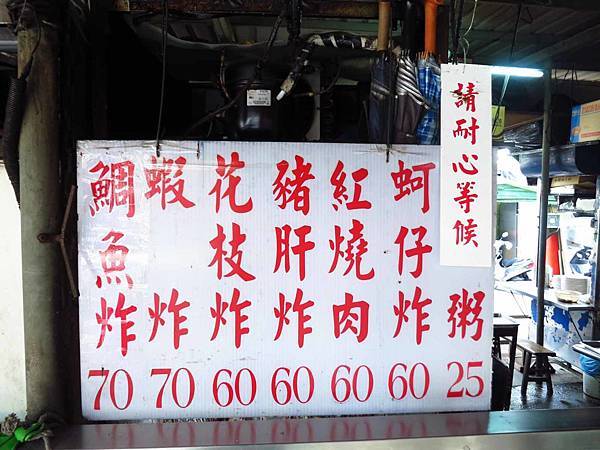 請耐心等候
粥 25
蚵仔炸 60
紅燒肉 60
豬肝炸 60
花枝炸 60
蝦炸 70
鯛魚炸 70